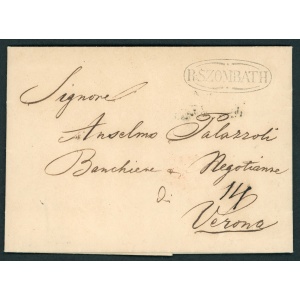 R.SZOMBATH
Signore
Anselmo Palazzoli
Banchiere e Negoziante
di
14
Verona